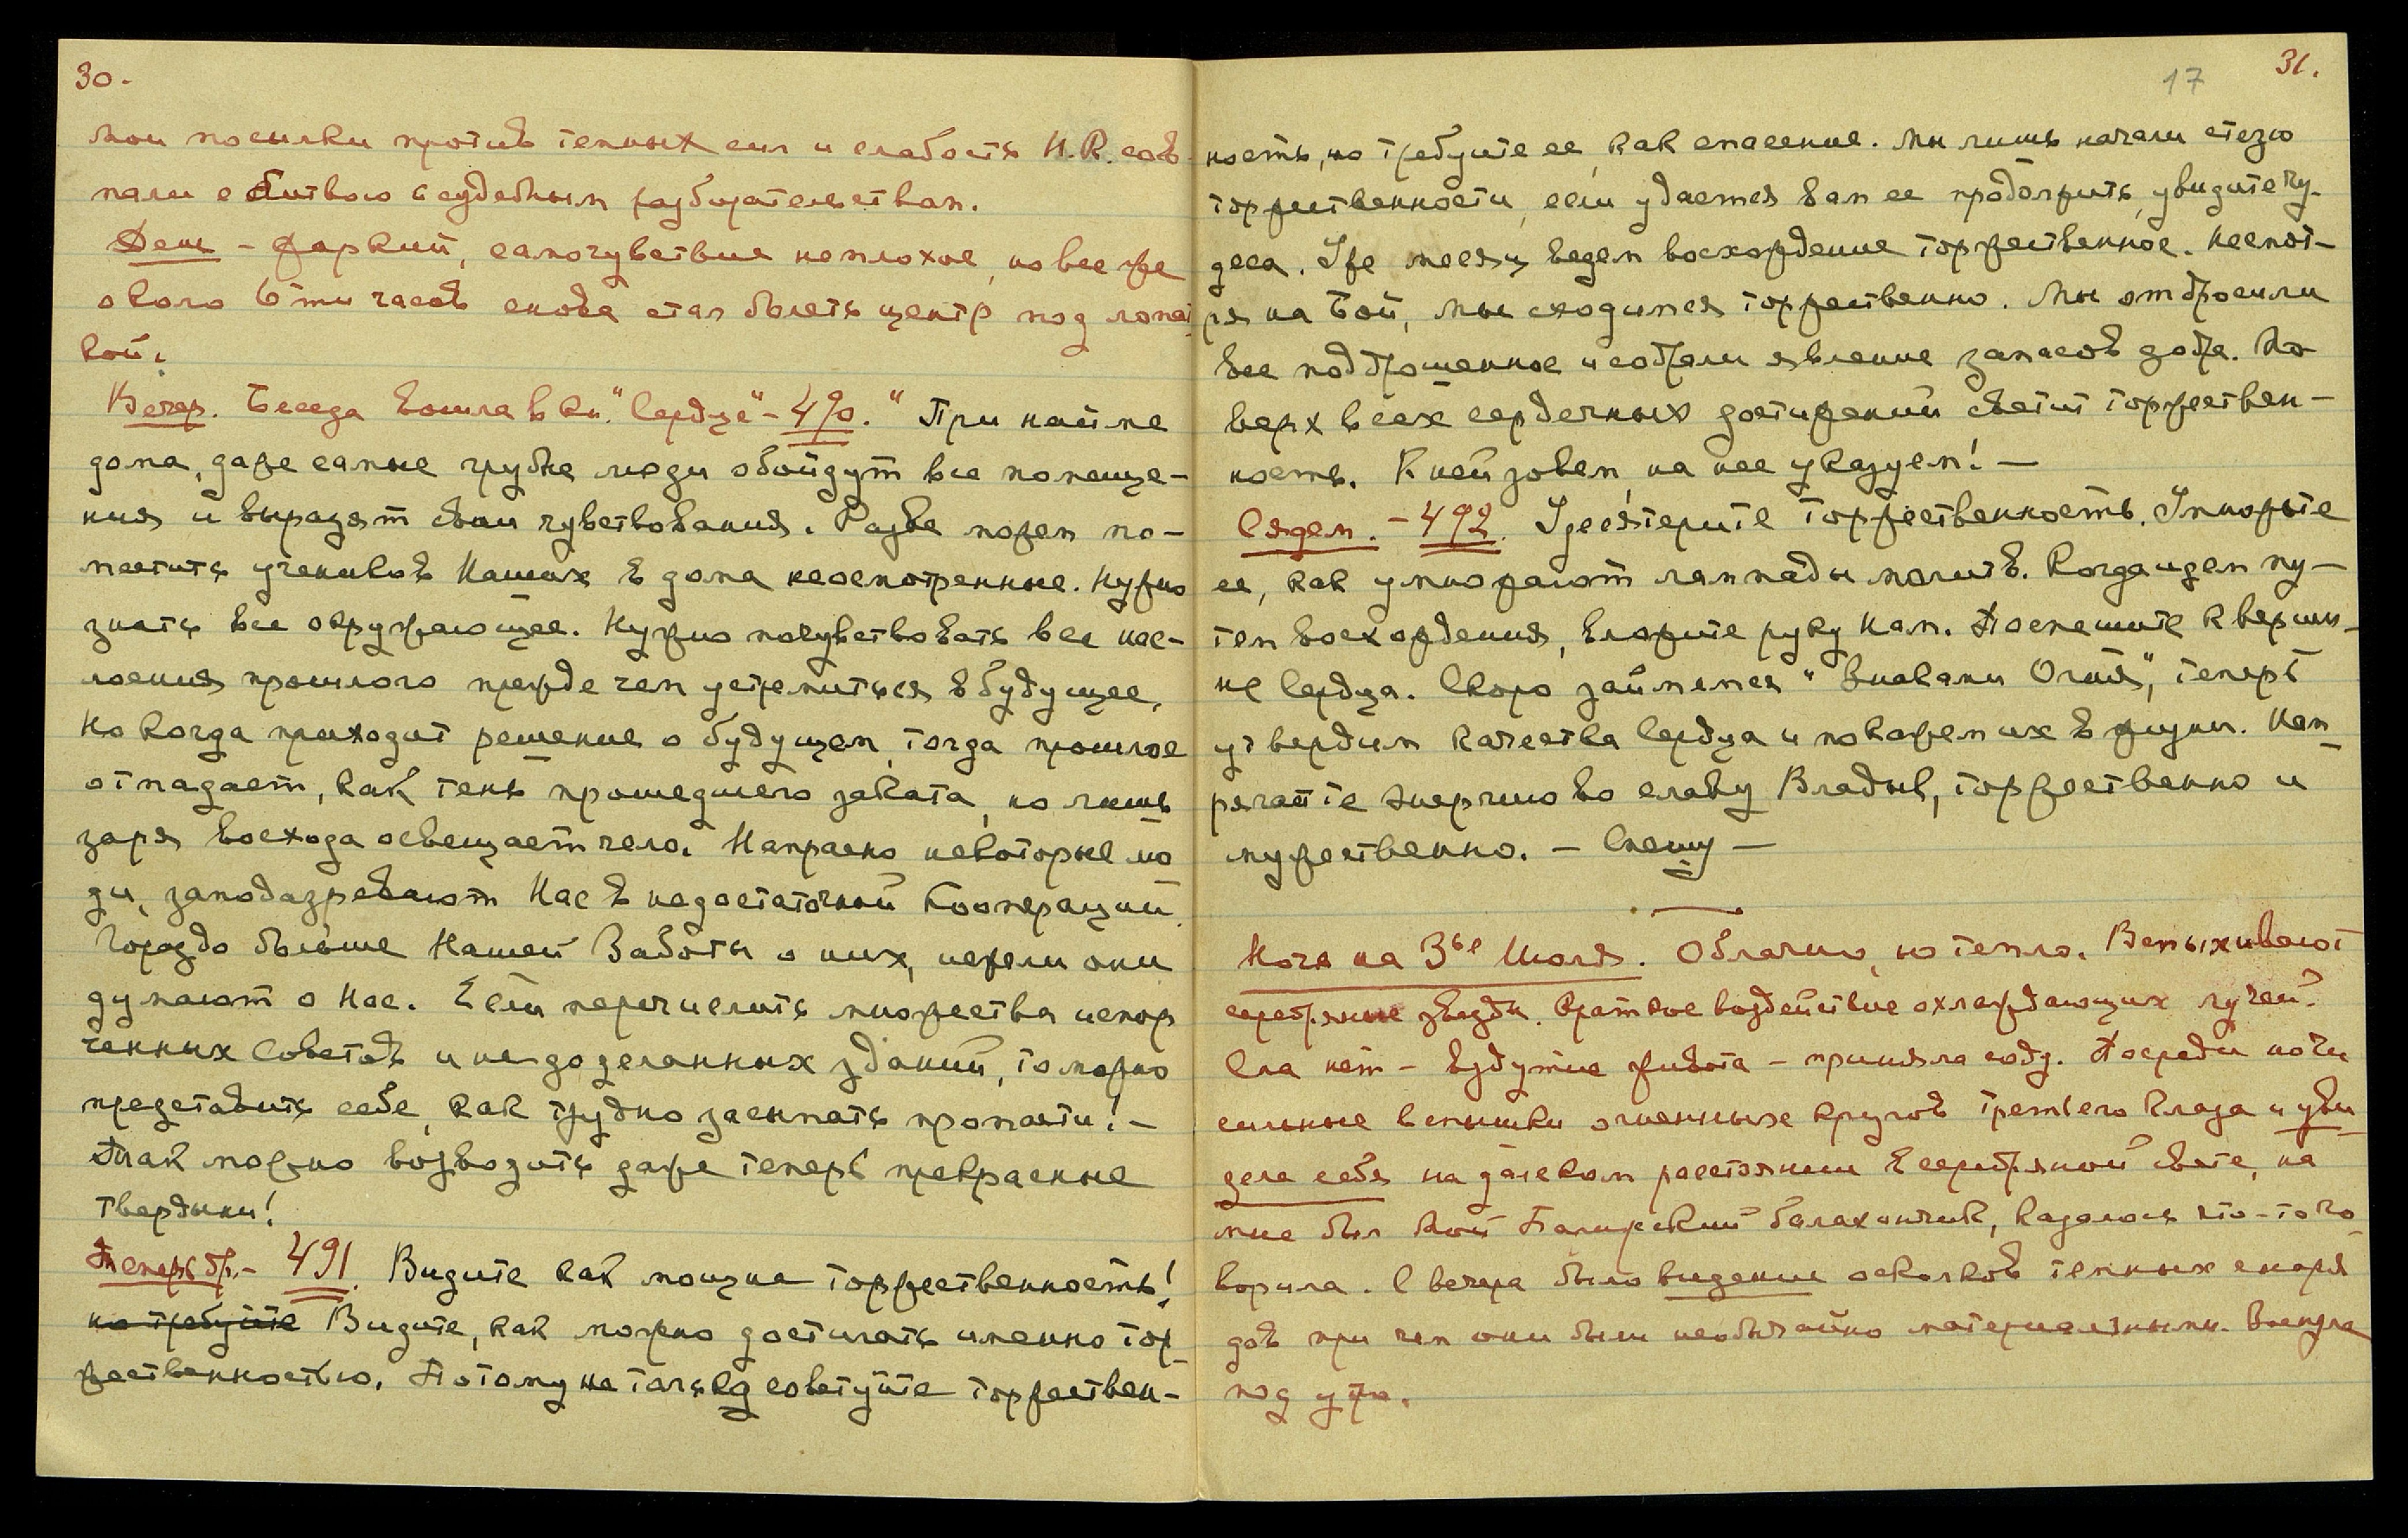 30.
Мои посылки против темных сил и слабость Н.К. сов-
пали с битвою с судебным разбирательством.
День – жаркий, самочувствие неплохое, но все же
около 6ти часов снова стал болеть центр под лопат
кой.
Вечер. Беседа вошла в кн. "Сердце" – 490. "При найме
дома, даже самые грубые люди обойдут все помеще-
ния и выразят свои чувствования. Разве можем по-
местить учеников Наших в дома неосмотренные. Нужно
знать все окружающее. Нужно почувствовать все нас-
лоения прошлого прежде чем устремиться в будущее,
но когда приходит решение о будущем, тогда прошлое
отпадает, как тень прошедшего заката, но лишь
заря восхода освещает чело. Напрасно некоторые лю
ди, заподазревают Нас в недостаточной Кооперации.
Гораздо больше Нашей Заботы о них, нежели они
думают о Нас. Если перечислить множества испор
ченных Советов и не доделанных зданий, то можно
представить себе, как трудно засыпать пропасти! –
Так можно возводить даже теперь прекрасные
твердыни!
Теперь др. – 491. Видите как мощна торжественность!
но требуйте Видите, как можно достигать именно тор
жественностью. Потому не только советуйте торжествен-
17 31.
ность, но требуйте ее, как спасение. Мы лишь начали стезю
торжественности, если удастся вам ее продолжить, увидите чу-
деса. Уже месяц ведем восхождение торжественное. Несмот-
ря на Бой, мы сходимся торжественно. Мы отбросили
все подброшенное и собрали явление запасов добра. По
верх всех сердечных достижений светит торжествен-
ность. К ней зовем на нее указуем! –
Сядем. – 492. Удесятерите Торжественность. Умножьте
ее, как умножают лампады молитв. Когда идем пу-
тем восхождения, вложите руку Нам. Поспешите к верши-
не Сердца. Скоро займемся "Знаками Огня", теперь
утвердим качества Сердца и покажем их в жизни. Нап
рягайте энергию во славу Владык, торжественно и
мужественно. – Спешу –
Ночь на 3ье Июля. Облачно, но тепло. Вспыхивают
серебряные звезды. Краткое воздействие охлаждающих лучей.
Сна нет – вздутие живота – приняла соду. Посреди ночи
сильные вспышки огненных кругов третьего глаза и уви
дела себя на далеком расстоянии в серебряном свете, на
мне был мой Балахончик, казалось что-то го
ворила. С вечера было видение осколков темных снаря
дов при чем они были необычайно материальными. Заснула
под утро.